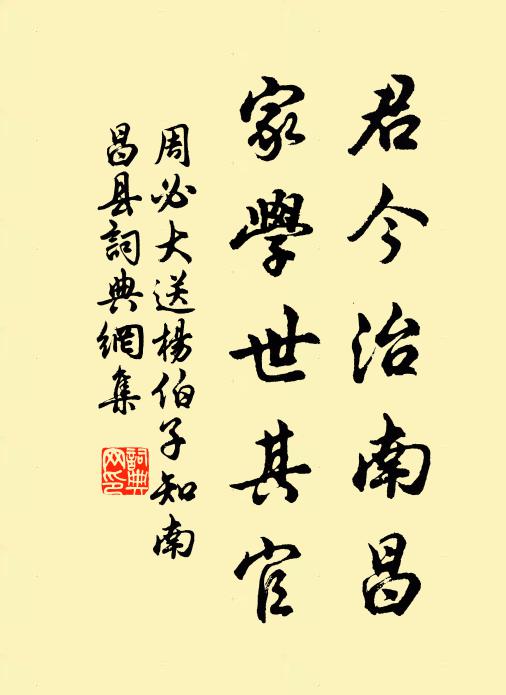 君今治南昌
家學世其官
周必大送楊伯子知南
昌县詞典網集
詞典
网印